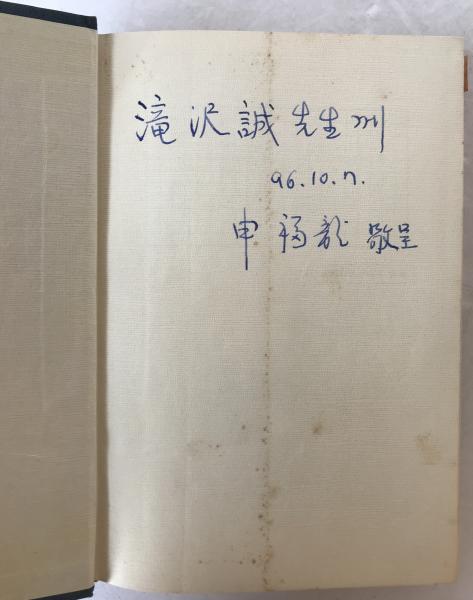 滝沢誠先生께
96.10.7.
申福龍 敬呈